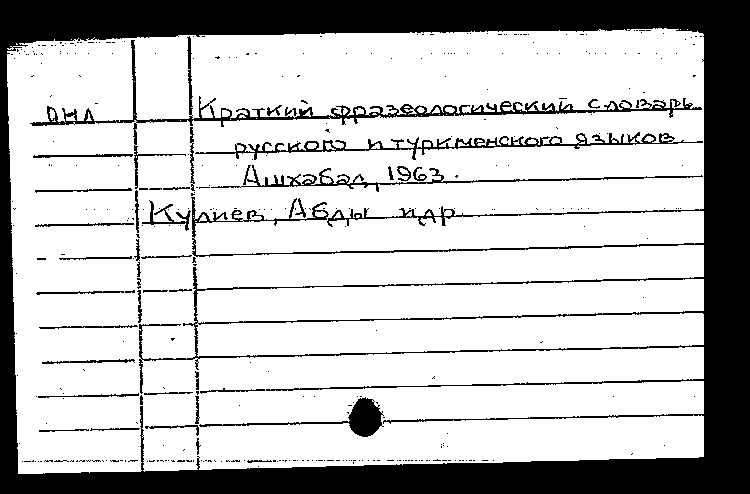 ДНЛ Краткий фразеологический словарь
русского и туркменского языков.
Ашхабад, 1963.
Кулиев, Абды и др